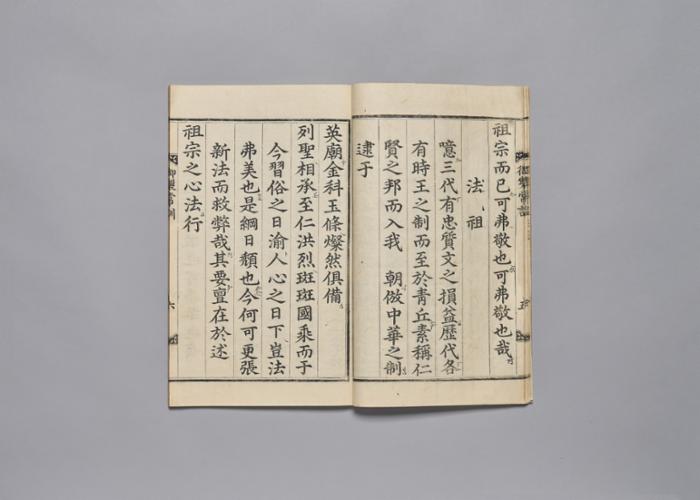 祖宗而已可弗敬也可弗敬也哉
法祖
噫三代有忠質文之損益歷代各
有時王之制而至於靑丘素稱仁
賢之邦而入我 朝倣中華之制
逮于
英廟金科玉條燦然俱備
列聖相承至仁洪烈斑斑國乘而于
今習俗之日渝人心之日下豈法
弗美也是綱日頹也今何可更張
新法而救弊哉其要亶在於述
祖宗之心法行
御製常訓
五
御製常訓
六